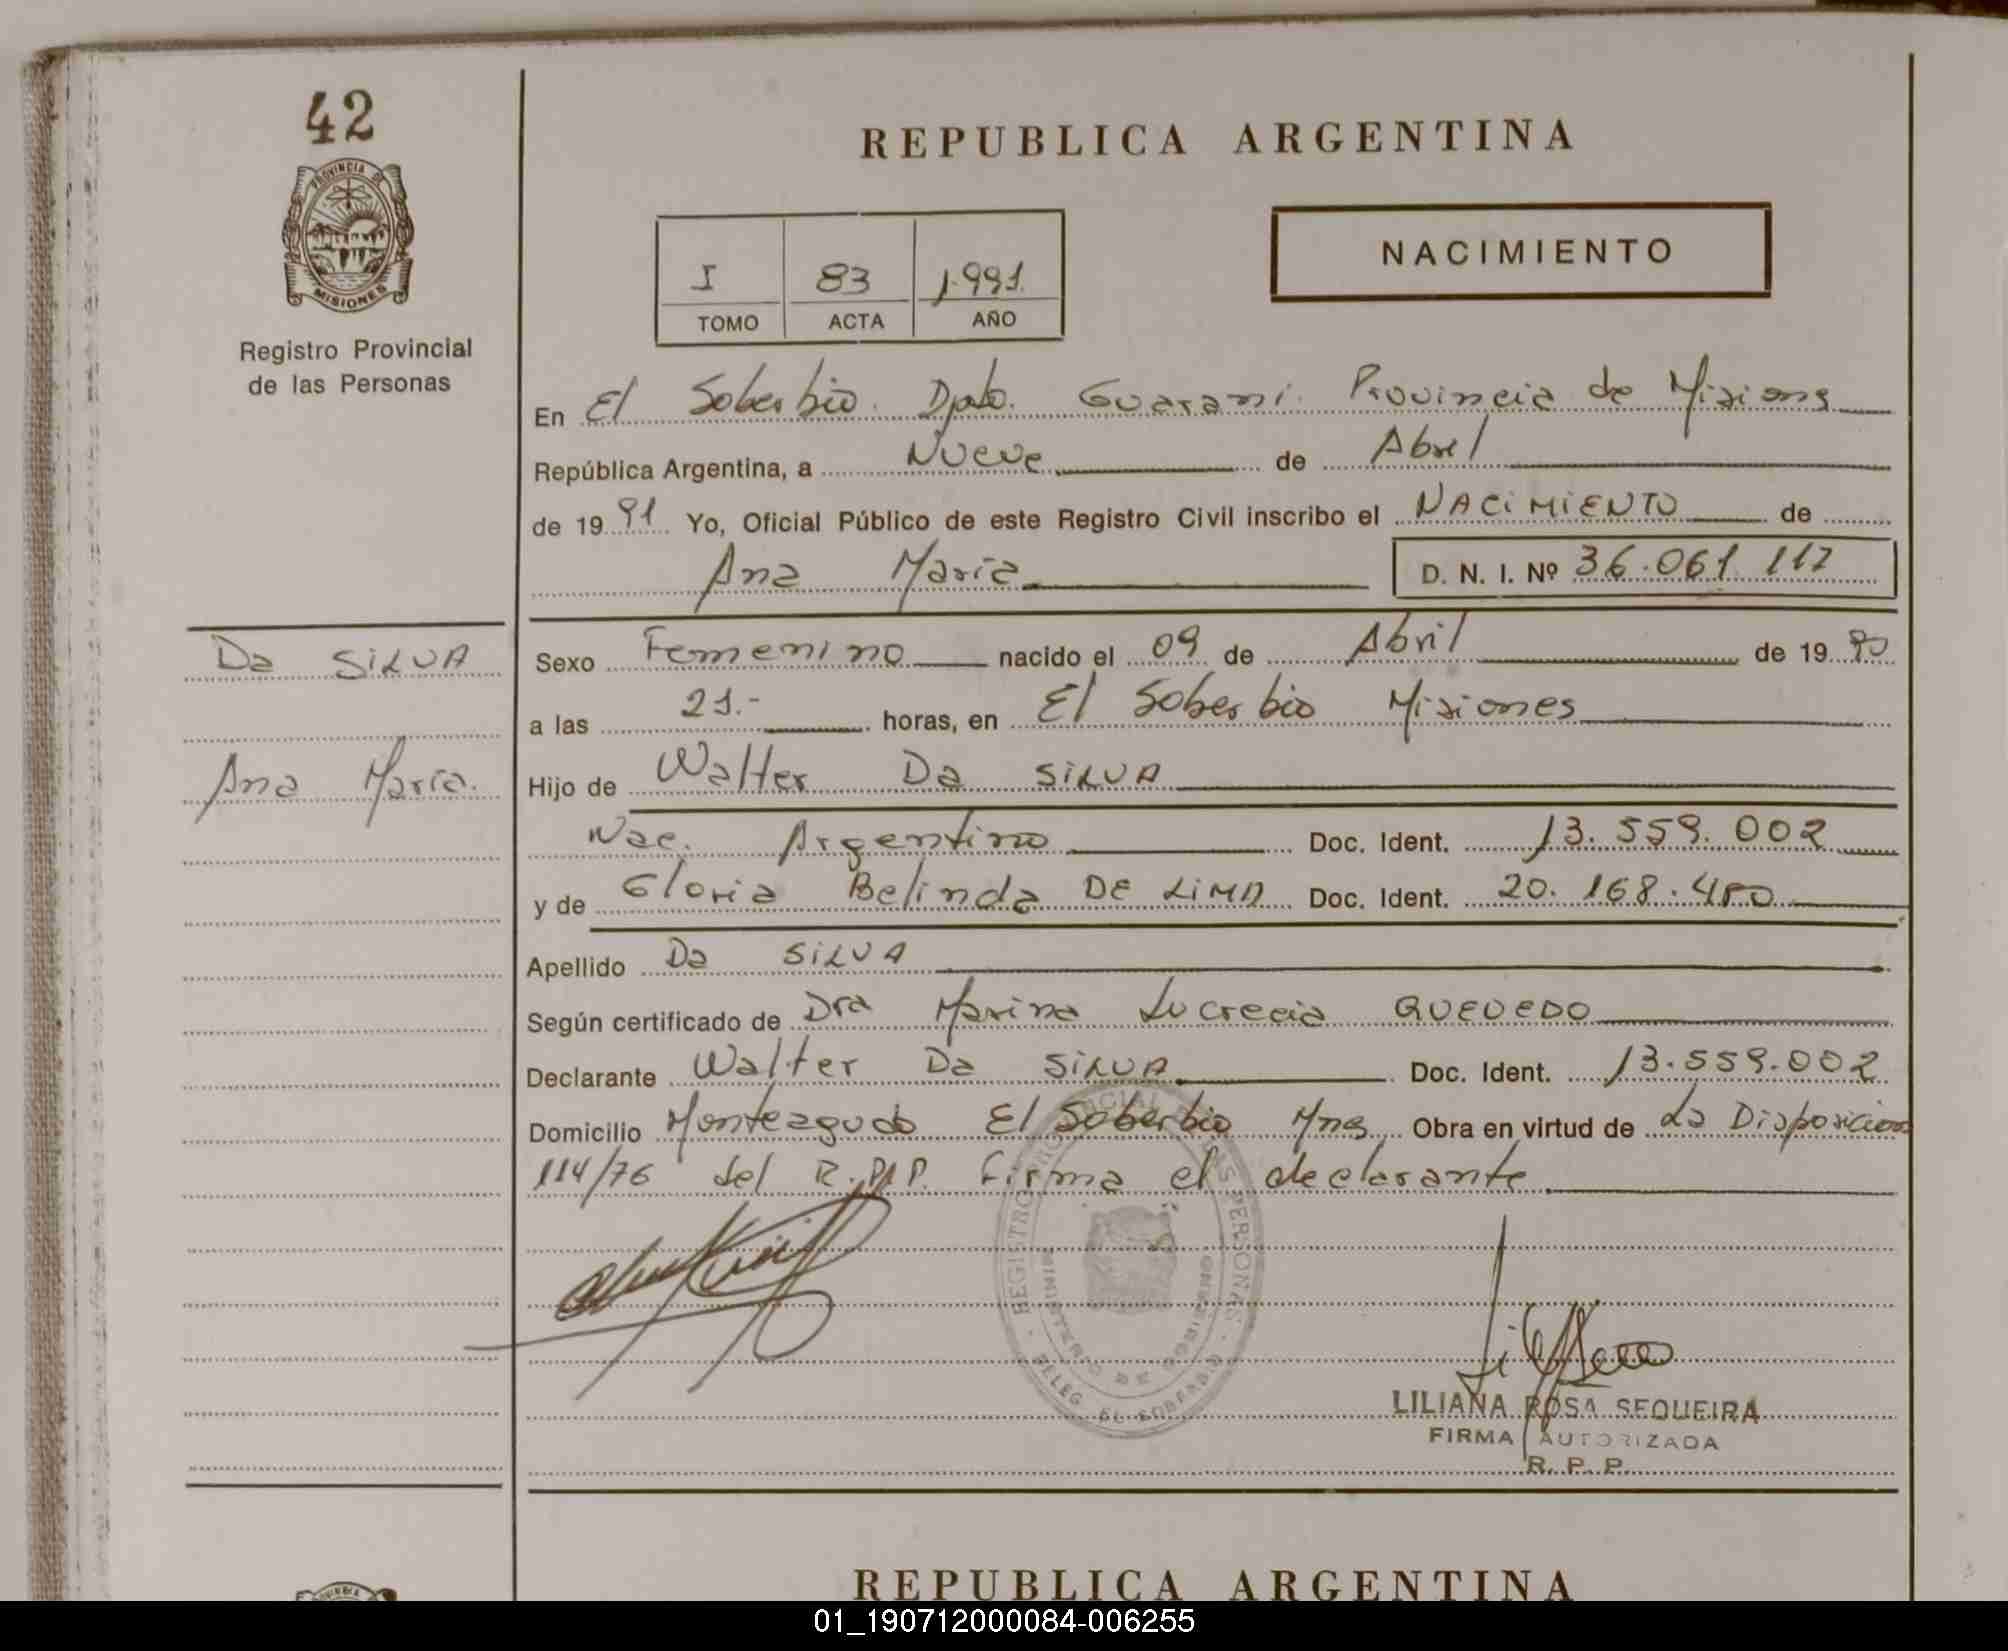 42
PROVINCIA DE
MISIONES
Registro Provincial
de las Personas
REPUBLICA ARGENTINA
NACIMIENTO
I 83 1.991.
TOMO ACTA AÑO
En El Soberbio. Dpto. Guarani. Provincia de Misiones
República Argentina, a Nueve de Abril
de 1991 Yo, Oficial Público de este Registro Civil inscribo el NACIMIENTO de
Ana Maria D. N. I. Nº 36.061.117
Da SILVA
Ana Maria.
Sexo Femenino nacido el 09 de Abril de 1990
a las 21.- horas, en El Soberbio Misiones
Hijo de Walter Da SILVA
Nac. Argentino Doc. Ident. 13.559.002
y de Gloria Belinda DE LIMA Doc. Ident. 20.168.480
Apellido Da SILVA
Según certificado de Dra Marina Lucrecia QUEVEDO
Declarante Walter Da SILVA Doc. Ident. 13.559.002
Domicilio Monteagudo El Soberbio Mns Obra en virtud de La Disposicion
114/76 del R.P.P. Firma el declarante
REGISTRO PROVINCIAL DE LAS PERSONAS
MINISTERIO DE GOBIERNO
DELEG. EL SOBERBIO
LILIANA ROSA SEQUEIRA
FIRMA AUTORIZADA
R. P. P.
REPUBLICA ARGENTINA
01_190712000084-006255